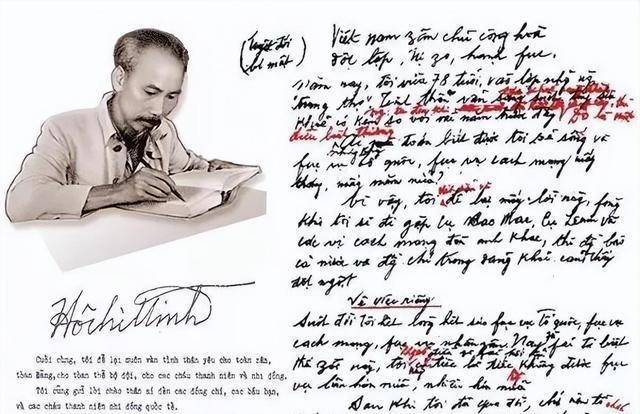 (tuyệt đối
bí mật)
Việt nam zân chủ cộng hoà
độc lập, tự zo, hạnh fúc.
Năm nay, tôi vừa 78 tuổi, vào lớp những ng
"trung thọ". Tinh thần vẫn
so với vài năm trước đây
điều bất thường
toán biết được tôi sẽ sống và
fục vụ tổ quốc, fục vụ cách mạng mấy
tháng, mấy năm nữa?
Vì vậy, tôi để lại mấy lời này, fòng
khi tôi sẽ đi gặp cụ Mác, cụ Lênin và
các vị cách mạng đàn anh khác, thì đồng bào
cả nước và đồng chí trong đảng khỏi cảm thấy
đột ngột.
Về việc riêng
Suốt đời tôi hết lòng hết sức fục vụ Tổ quốc, fục vụ
cách mạng, fục vụ nhân dân. Nay fải từ biệt
thế zới này, tôi tiếc là tiếc không được fục
vụ lâu hơn nữa, nhiều hơn nữa.
Sau khi tôi đã qua đời, chớ nên tổ chức
Hồ Chí Minh
Cuối cùng, tôi để lại muôn vàn tình thân yêu cho toàn zân,
toàn Đảng, cho toàn thể bộ đội, cho các cháu thanh niên và nhi đồng.
Tôi cũng gửi lời chào thân ái đến các đồng chí, các bầu bạn,
và các cháu thanh niên nhi đồng quốc tế.